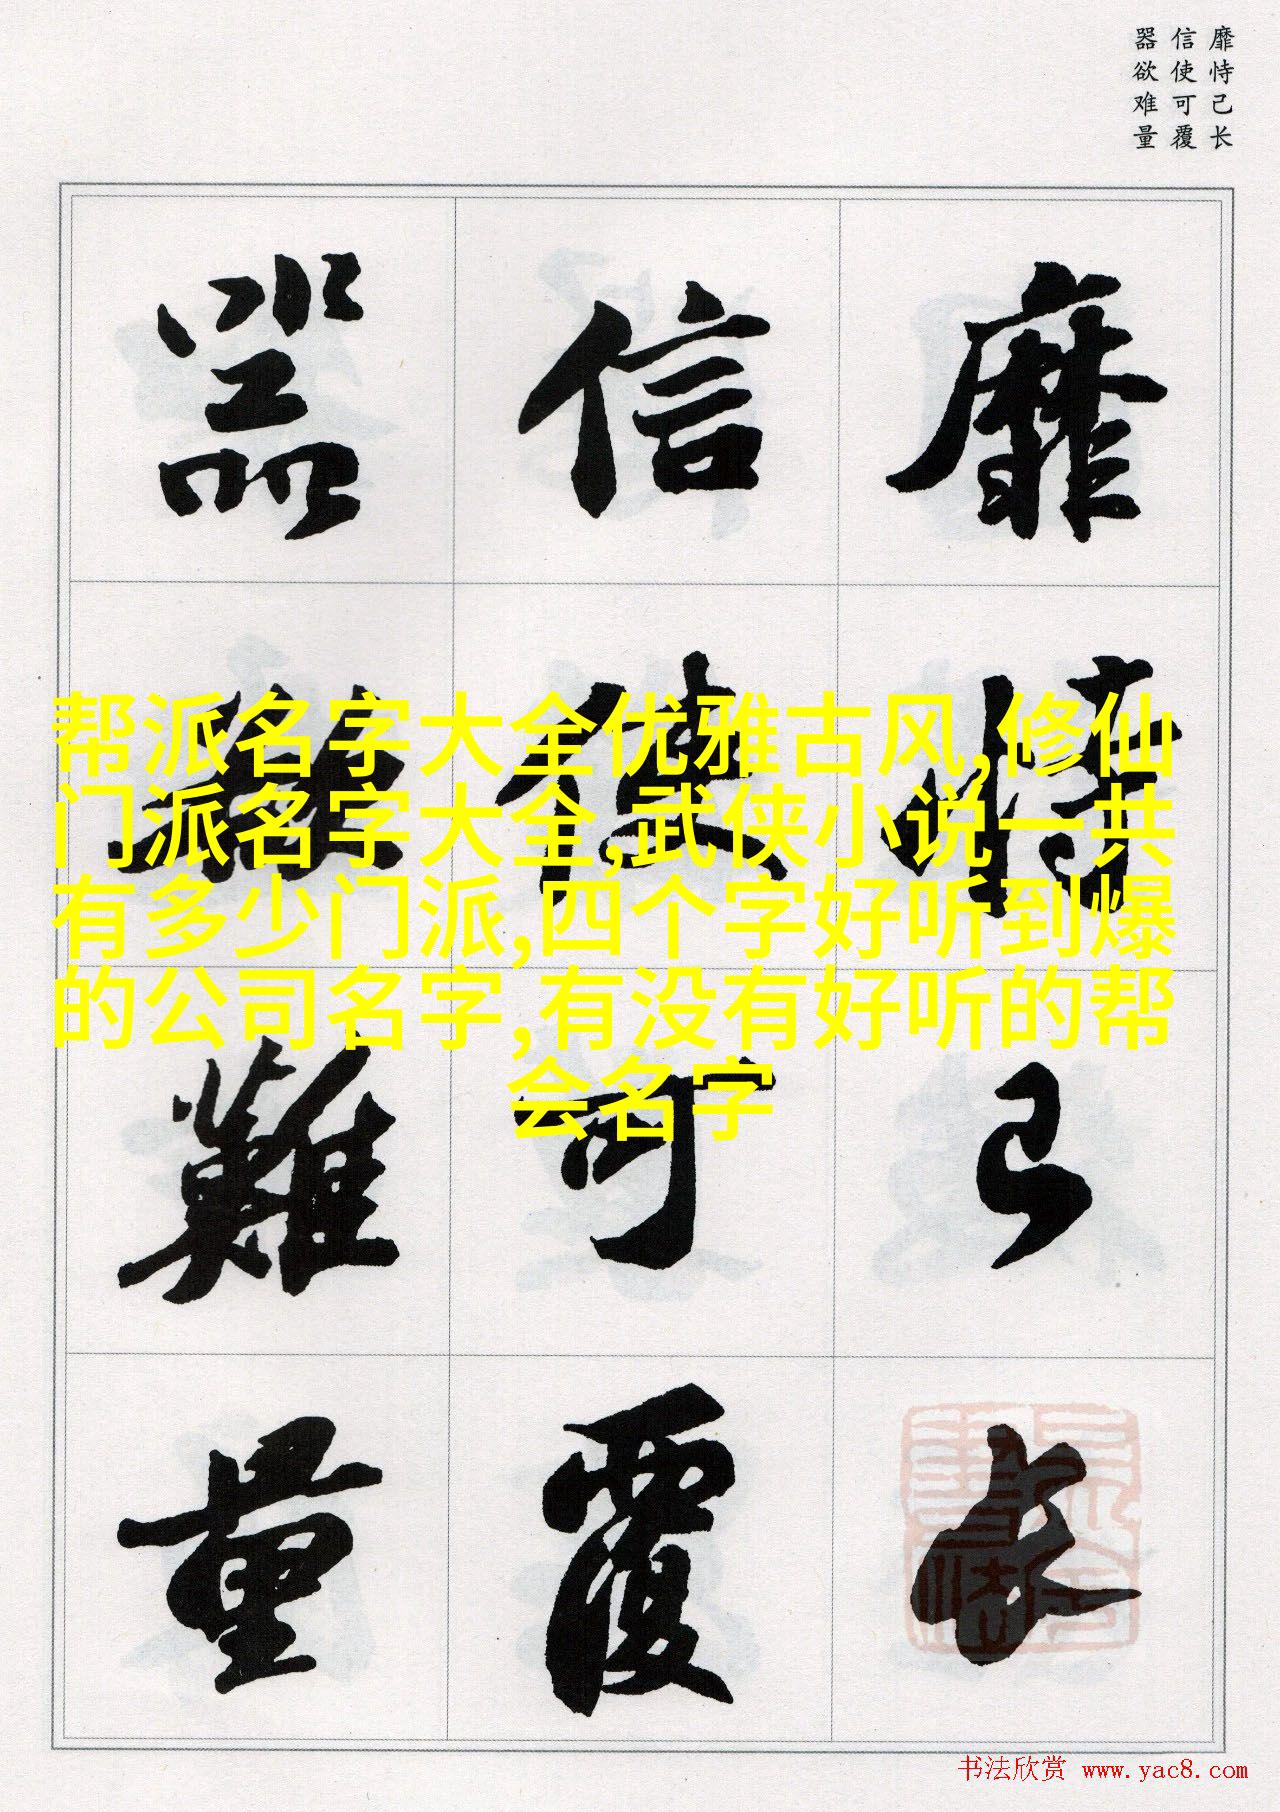 靡恃己长
信使可覆
器欲难量
靡恃己長
信使可覆
器欲難量
帮派名字大全优雅古风,修仙
门派名字大全,武侠小说一共
有多少门派,四个字好听到爆
的公司名字,有没有好听的帮
会名字
书法欣赏 www.yac8.com